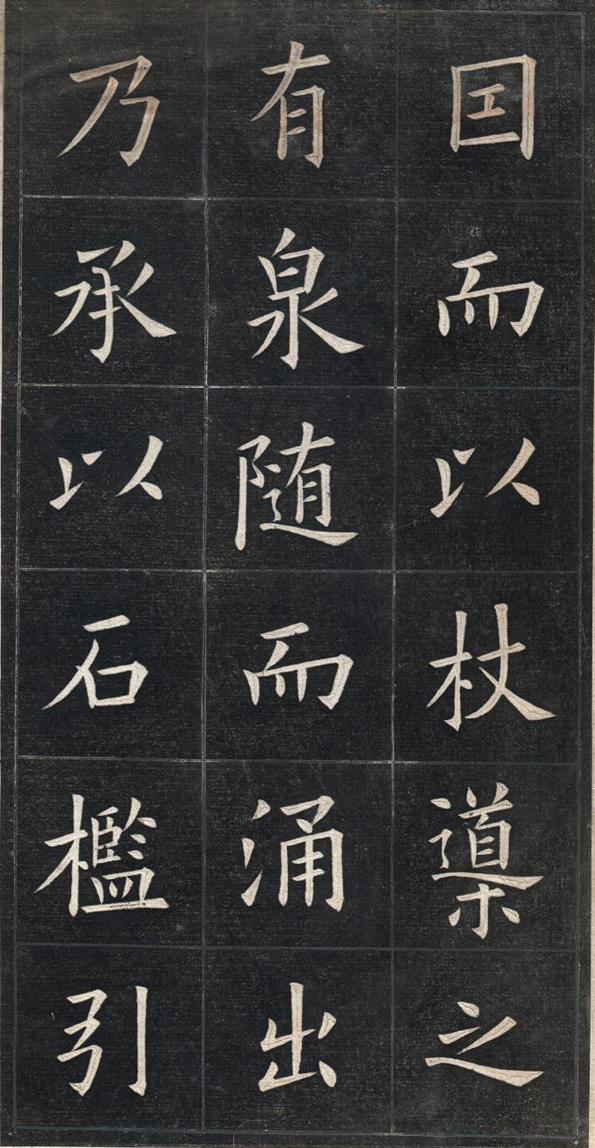 囙而以杖導之
有泉随而涌出
乃承以石檻引